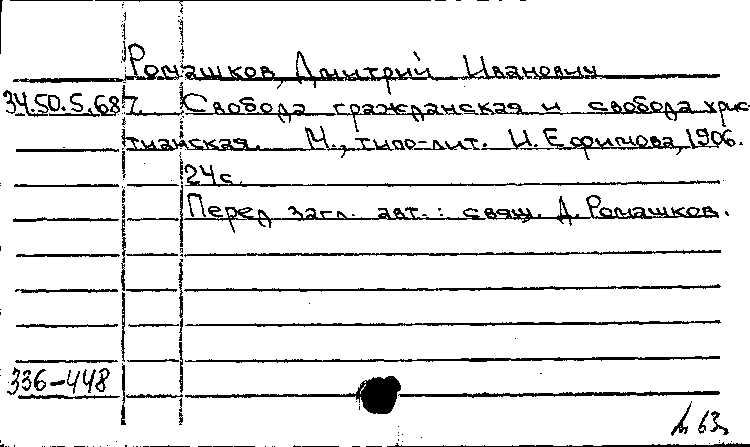 Ромашков, Дмитрий Иванович
34.50.5.687. Свобода гражданская и свобода хрис-
тианская. М., типо-лит. И. Ефимова, 1906.
24с.
Перед загл. авт.: свящ. Д. Ромашков.
336-448
63